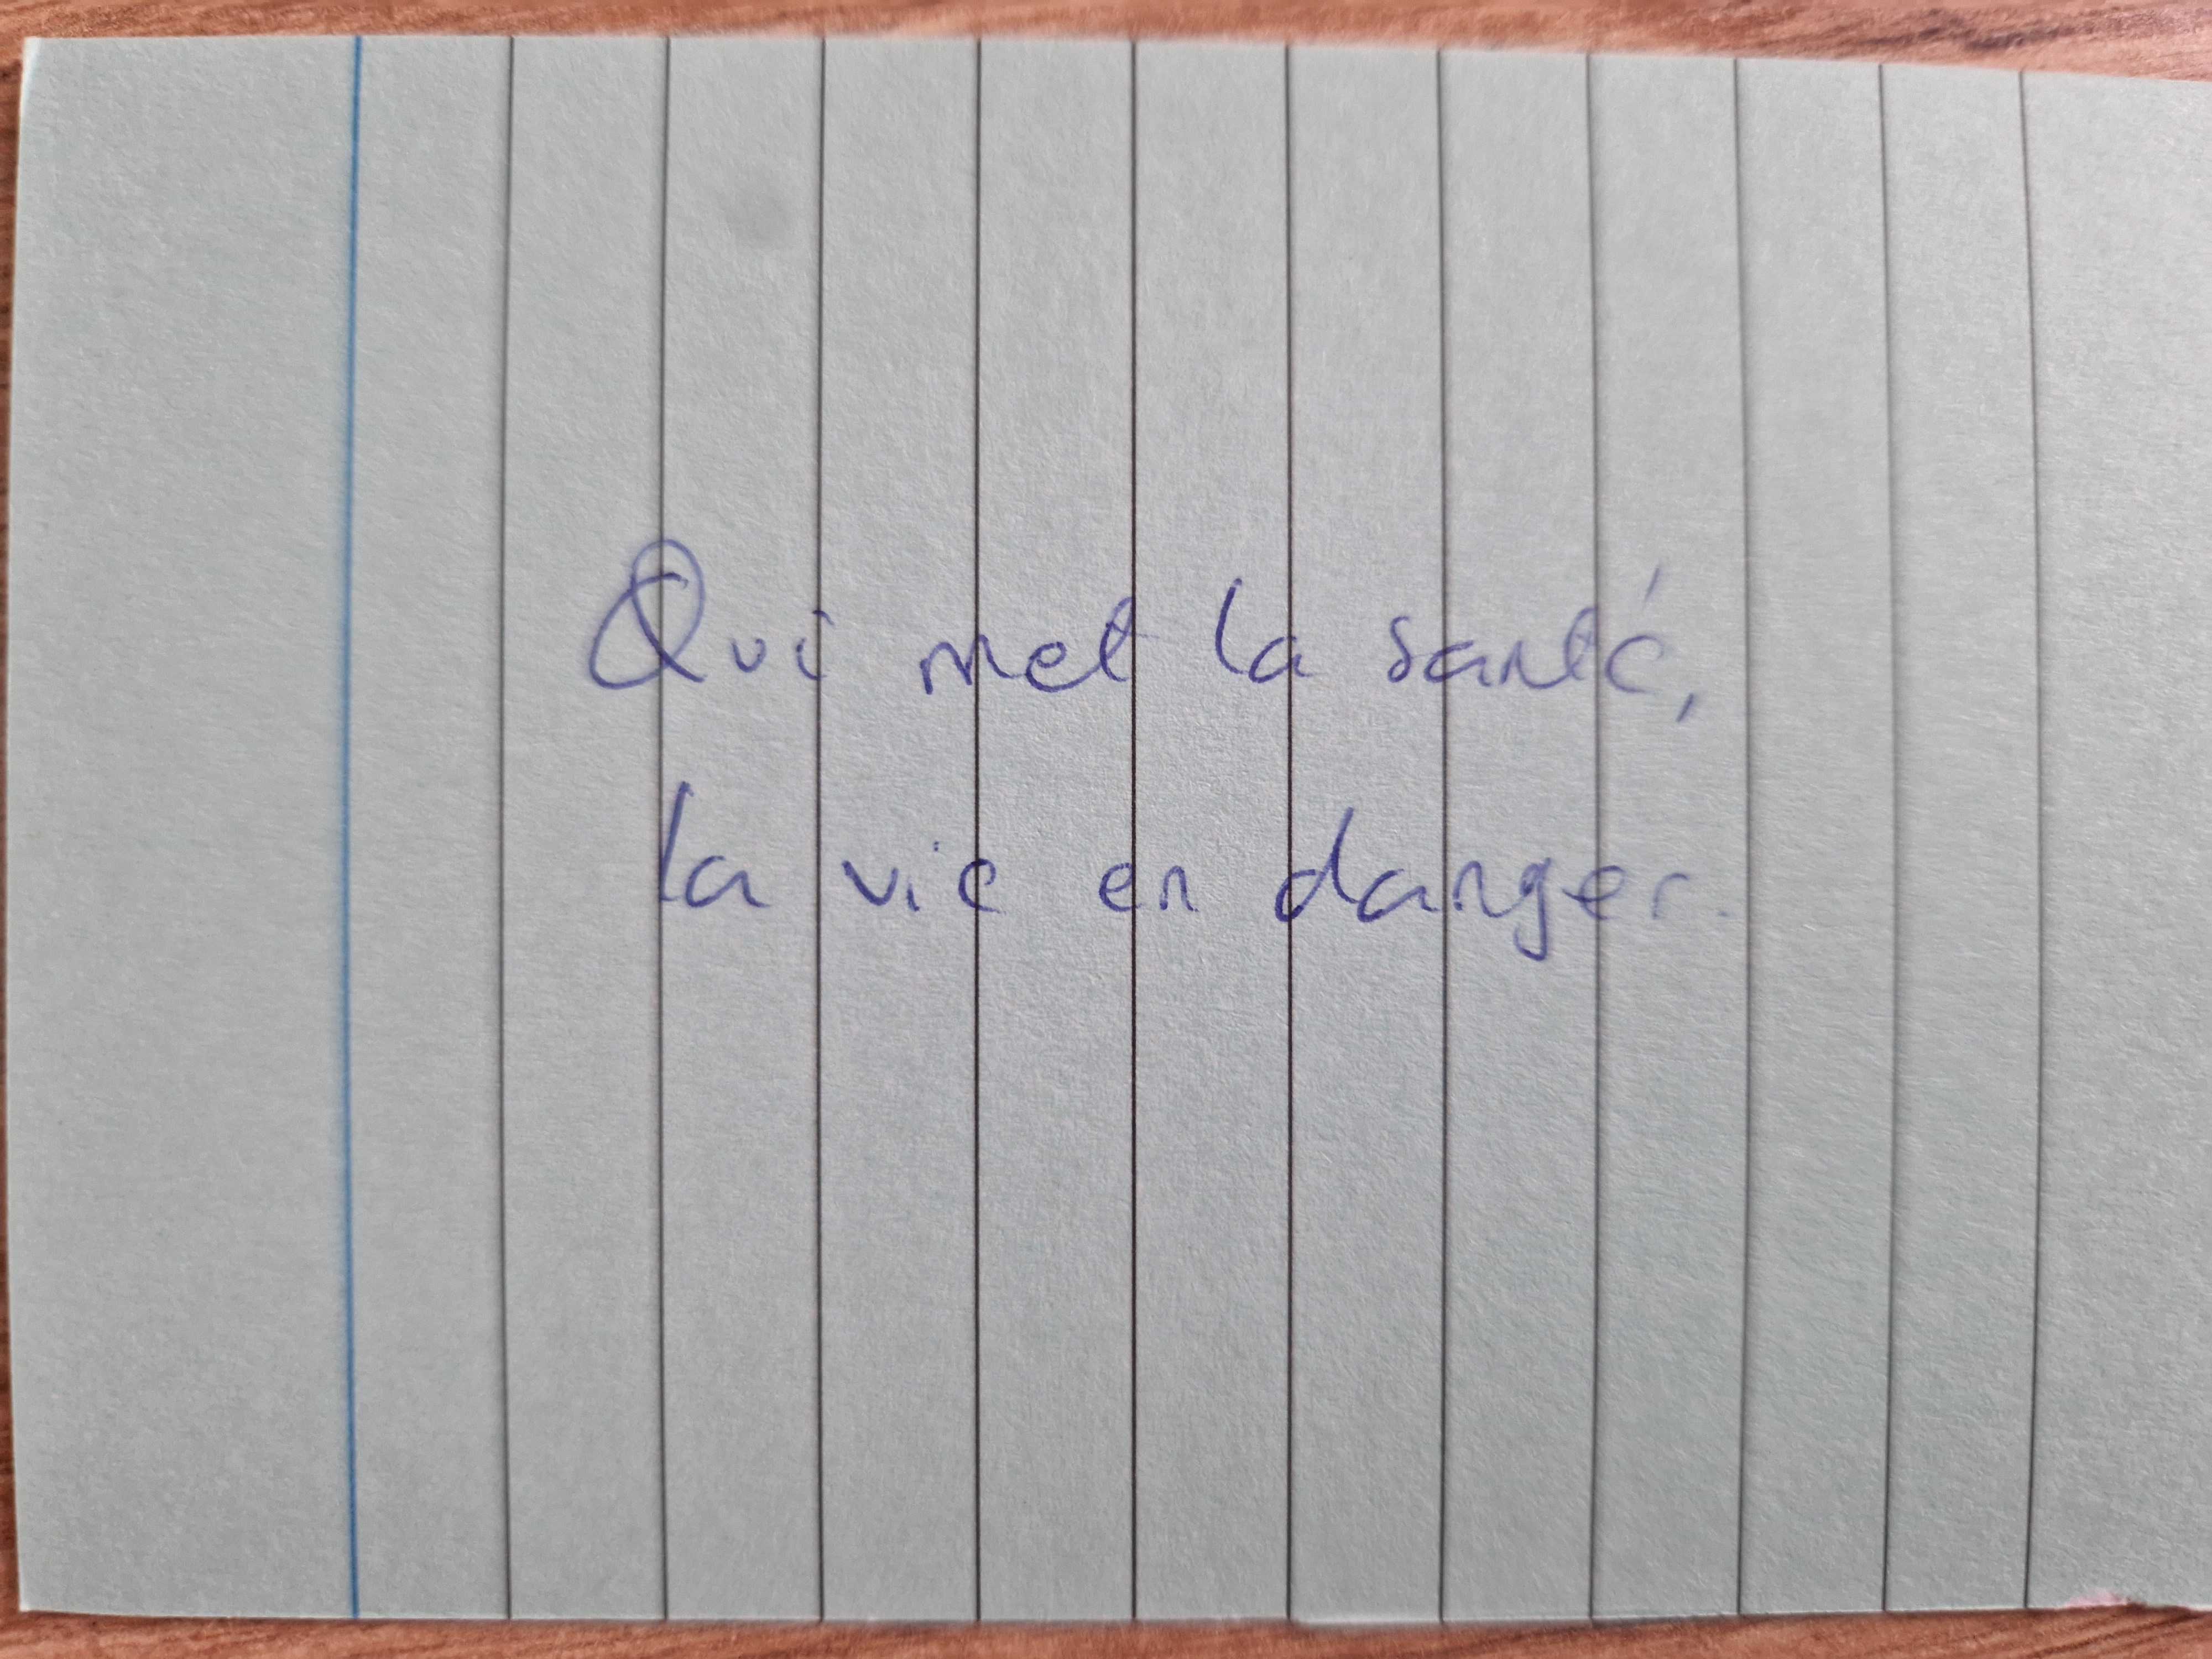 Qui met la santé,
la vie en danger.